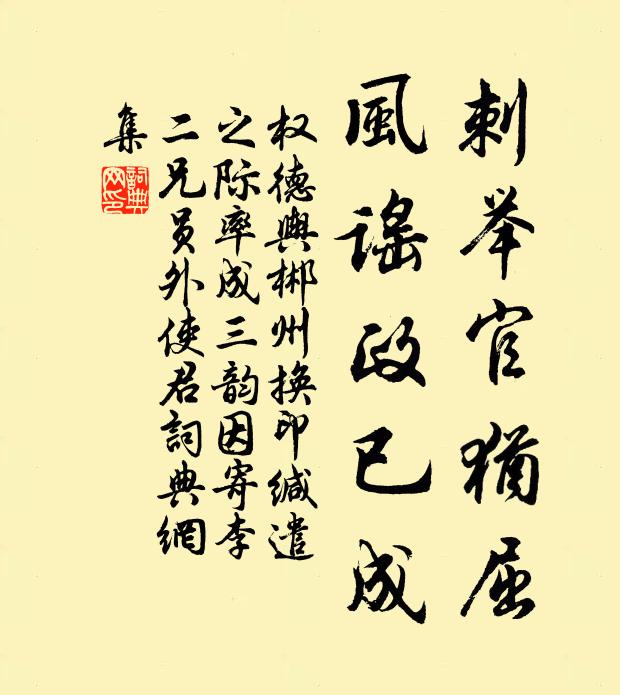 刺举官犹屈
風謠政已成
权德舆郴州换印缄遣
之际率成三韵因寄李
二兄员外使君詞典網
集
詞典网印